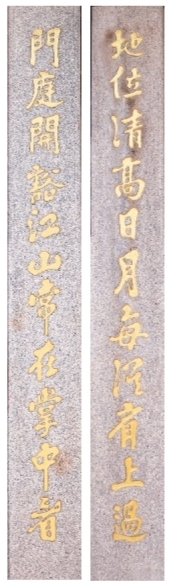 地位清高日月每從肩上過
門庭開豁江山常在掌中看